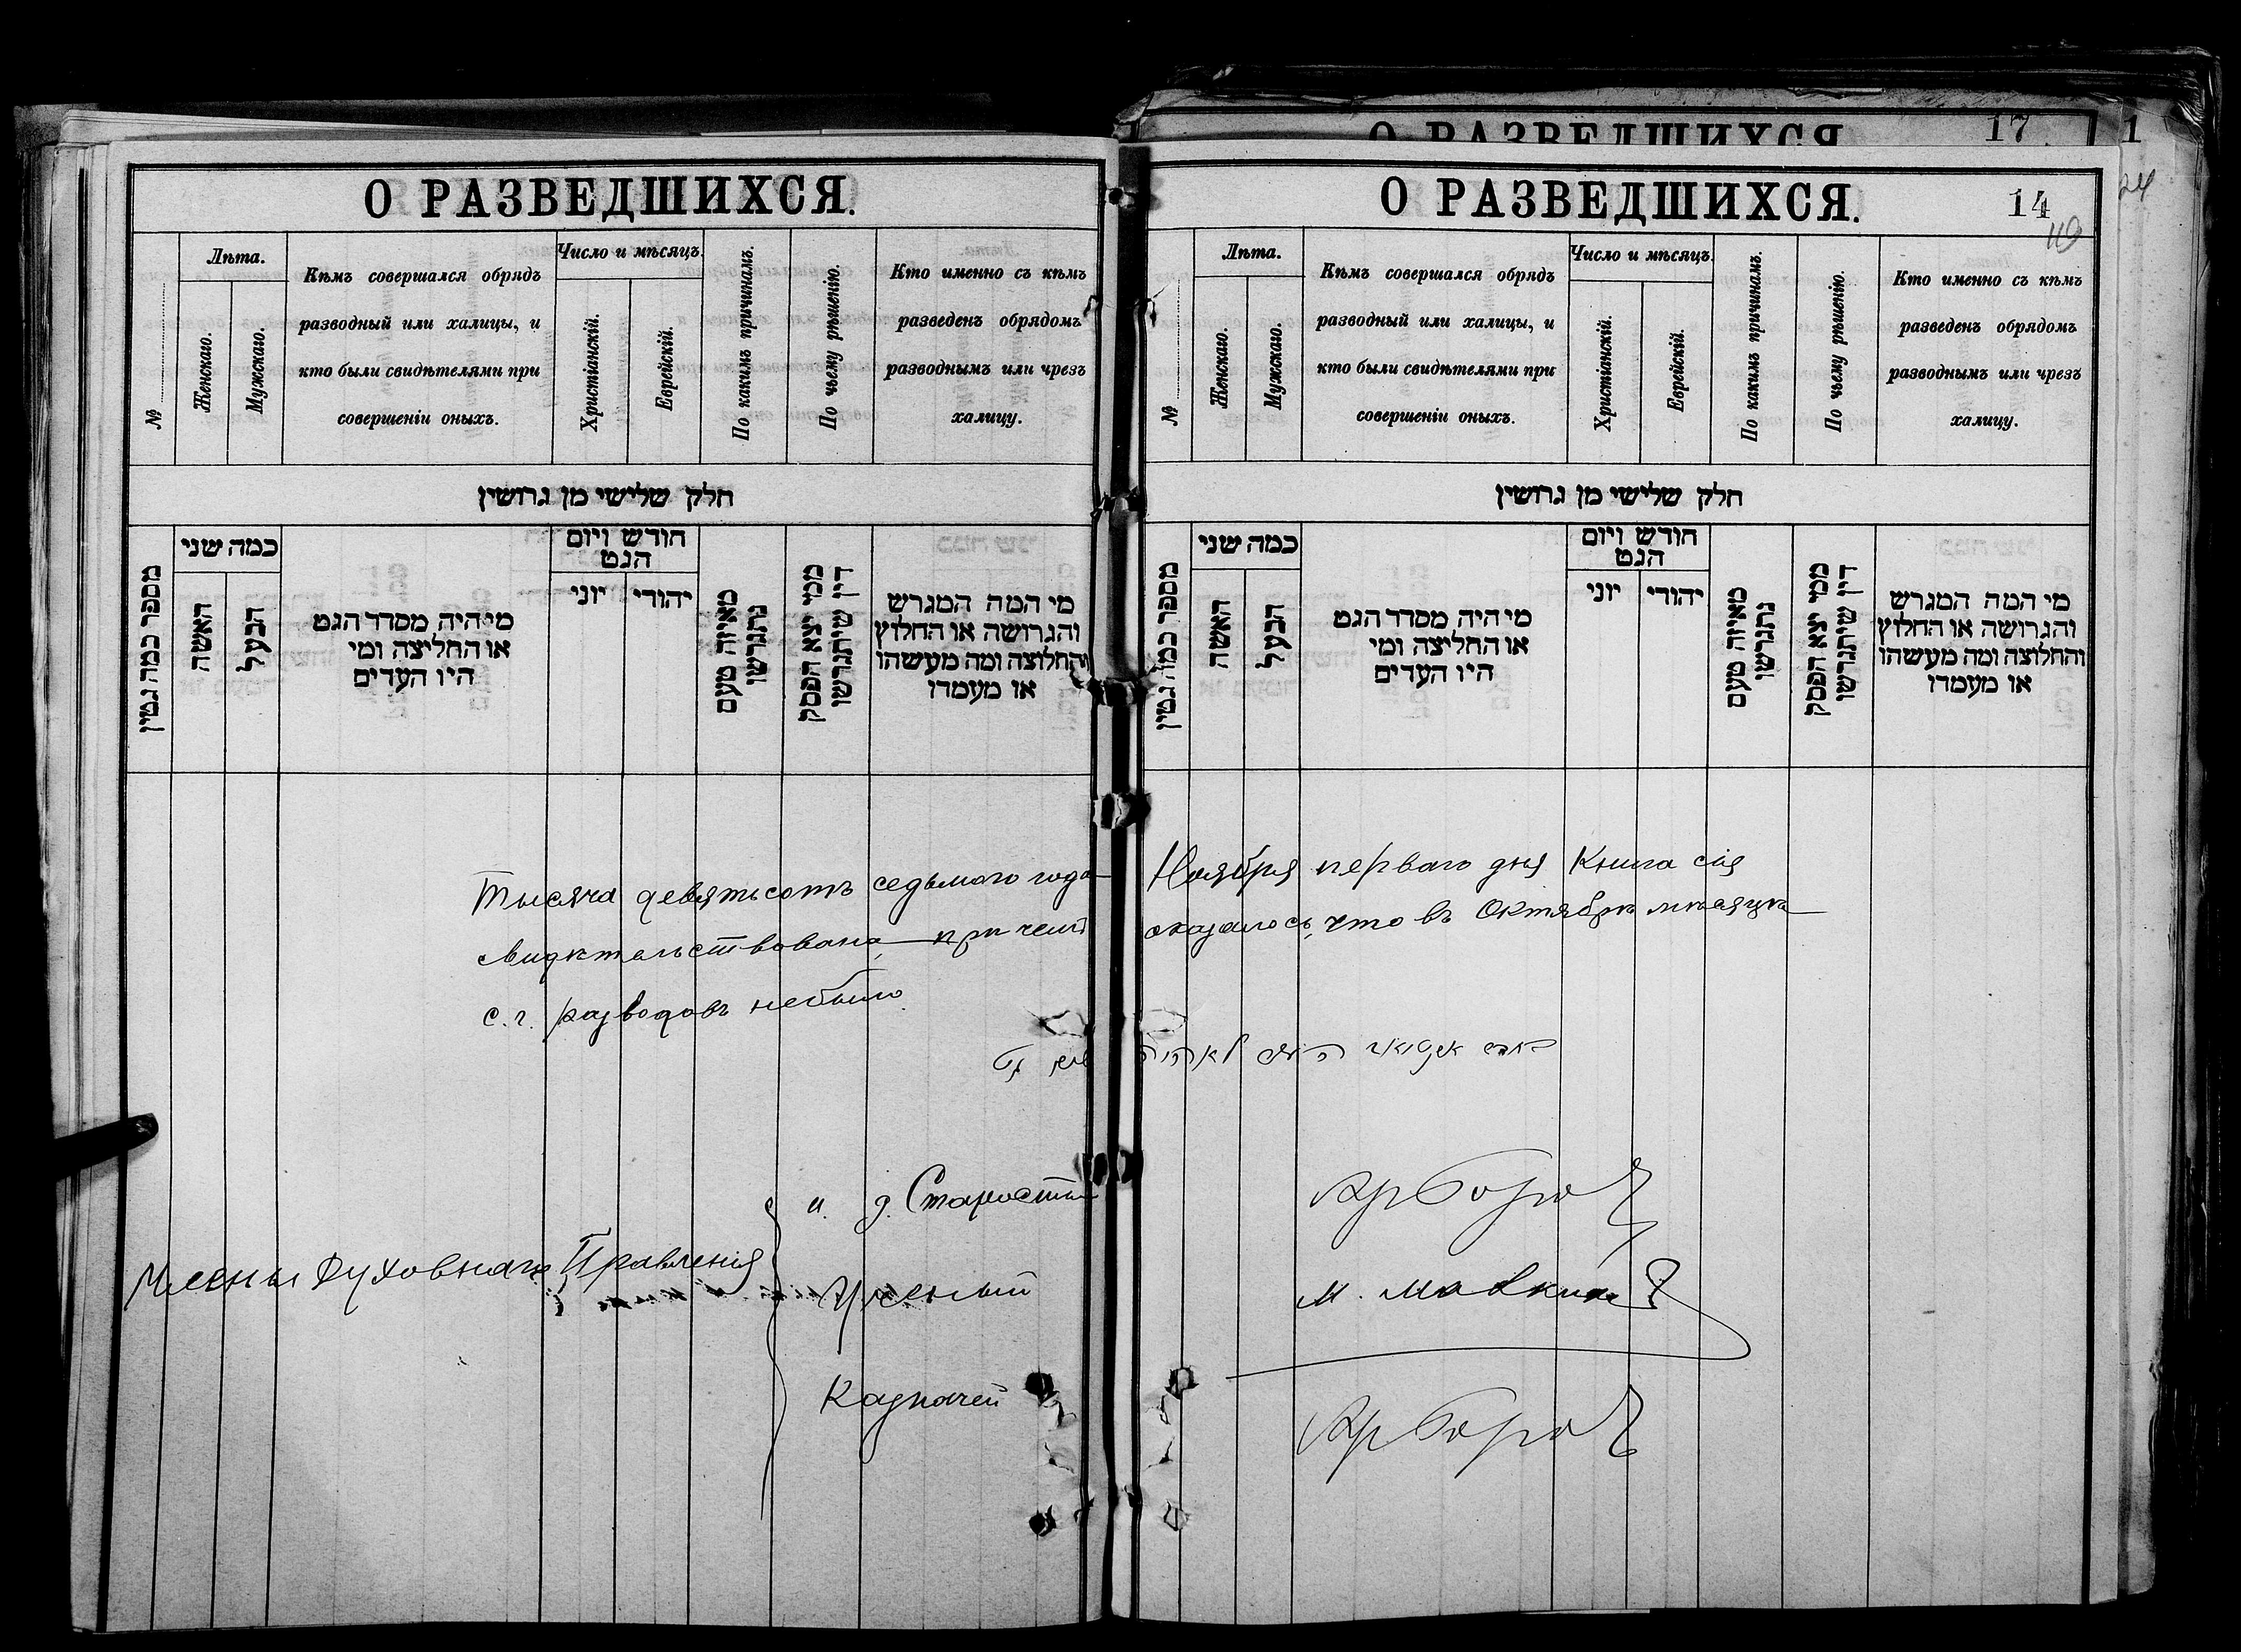 О РАЗВЕДШИХСЯ.
№
Лѣта.
Женскаго.
Мужскаго.
Кѣмъ совершался обрядъ
разводный или халицы, и
кто были свидѣтелями при
совершеніи оныхъ.
Число и мѣсяцъ.
Христіанскій.
Еврейскій.
По какимъ причинамъ.
По чьему рѣшенію.
Кто именно съ кѣмъ
разведенъ обрядомъ
разводнымъ или чрезъ
халицу.
חלק שלישי מן גרושין
מספר כמה גטין
כמה שני
האשה
הבעל
מי היה מסדר הגט
או החליצה ומי
היו העדים
חודש ויום
הגט
יוני
יהודי
מאיזה טעם
נתגרשו
ממי יצא הפסק
דין שיתגרשו
מי המה המגרש
והגרושה או החלוץ
והחלוצה ומה מעשהו
או מעמדו
О РАЗВЕДШИХСЯ
17
1
24
О РАЗВЕДШИХСЯ.
14
№
Лѣта.
Женскаго.
Мужскаго.
Кѣмъ совершался обрядъ
разводный или халицы, и
кто были свидѣтелями при
совершеніи оныхъ.
Число и мѣсяцъ.
Христіанскій.
Еврейскій.
По какимъ причинамъ.
По чьему рѣшенію.
Кто именно съ кѣмъ
разведенъ обрядомъ
разводнымъ или чрезъ
халицу.
חלק שלישי מן גרושין
מספר כמה גטין
כמה שני
האשה
הבעל
מי היה מסדר הגט
או החליצה ומי
היו העדים
חודש ויום
הגט
יוני
יהודי
מאיזה טעם
נתגרשו
ממי יצא הפסק
דין שיתגרשו
מי המה המגרש
והגרושה או החלוץ
והחלוצה ומה מעשהו
או מעמדו
Тысяча девятьсотъ седьмого года Ноября перваго дня Книга сія
свидѣтельствована, при чемъ оказалось, что въ Октябрѣ мѣсяцѣ
с. г. разводовъ небыло.
Члены Духовнаго Правленія
и. д. Старосты
Ученый М. Мовкина
Казначей